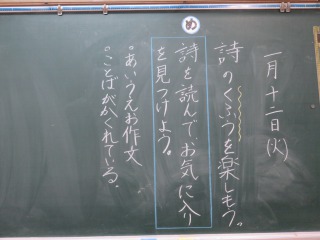 一月十二日(火)
詩のくふうを楽しもう。
め
詩を読んでお気に入り
を見つけよう。
・あいうえお作文
・ことばがかくれている。